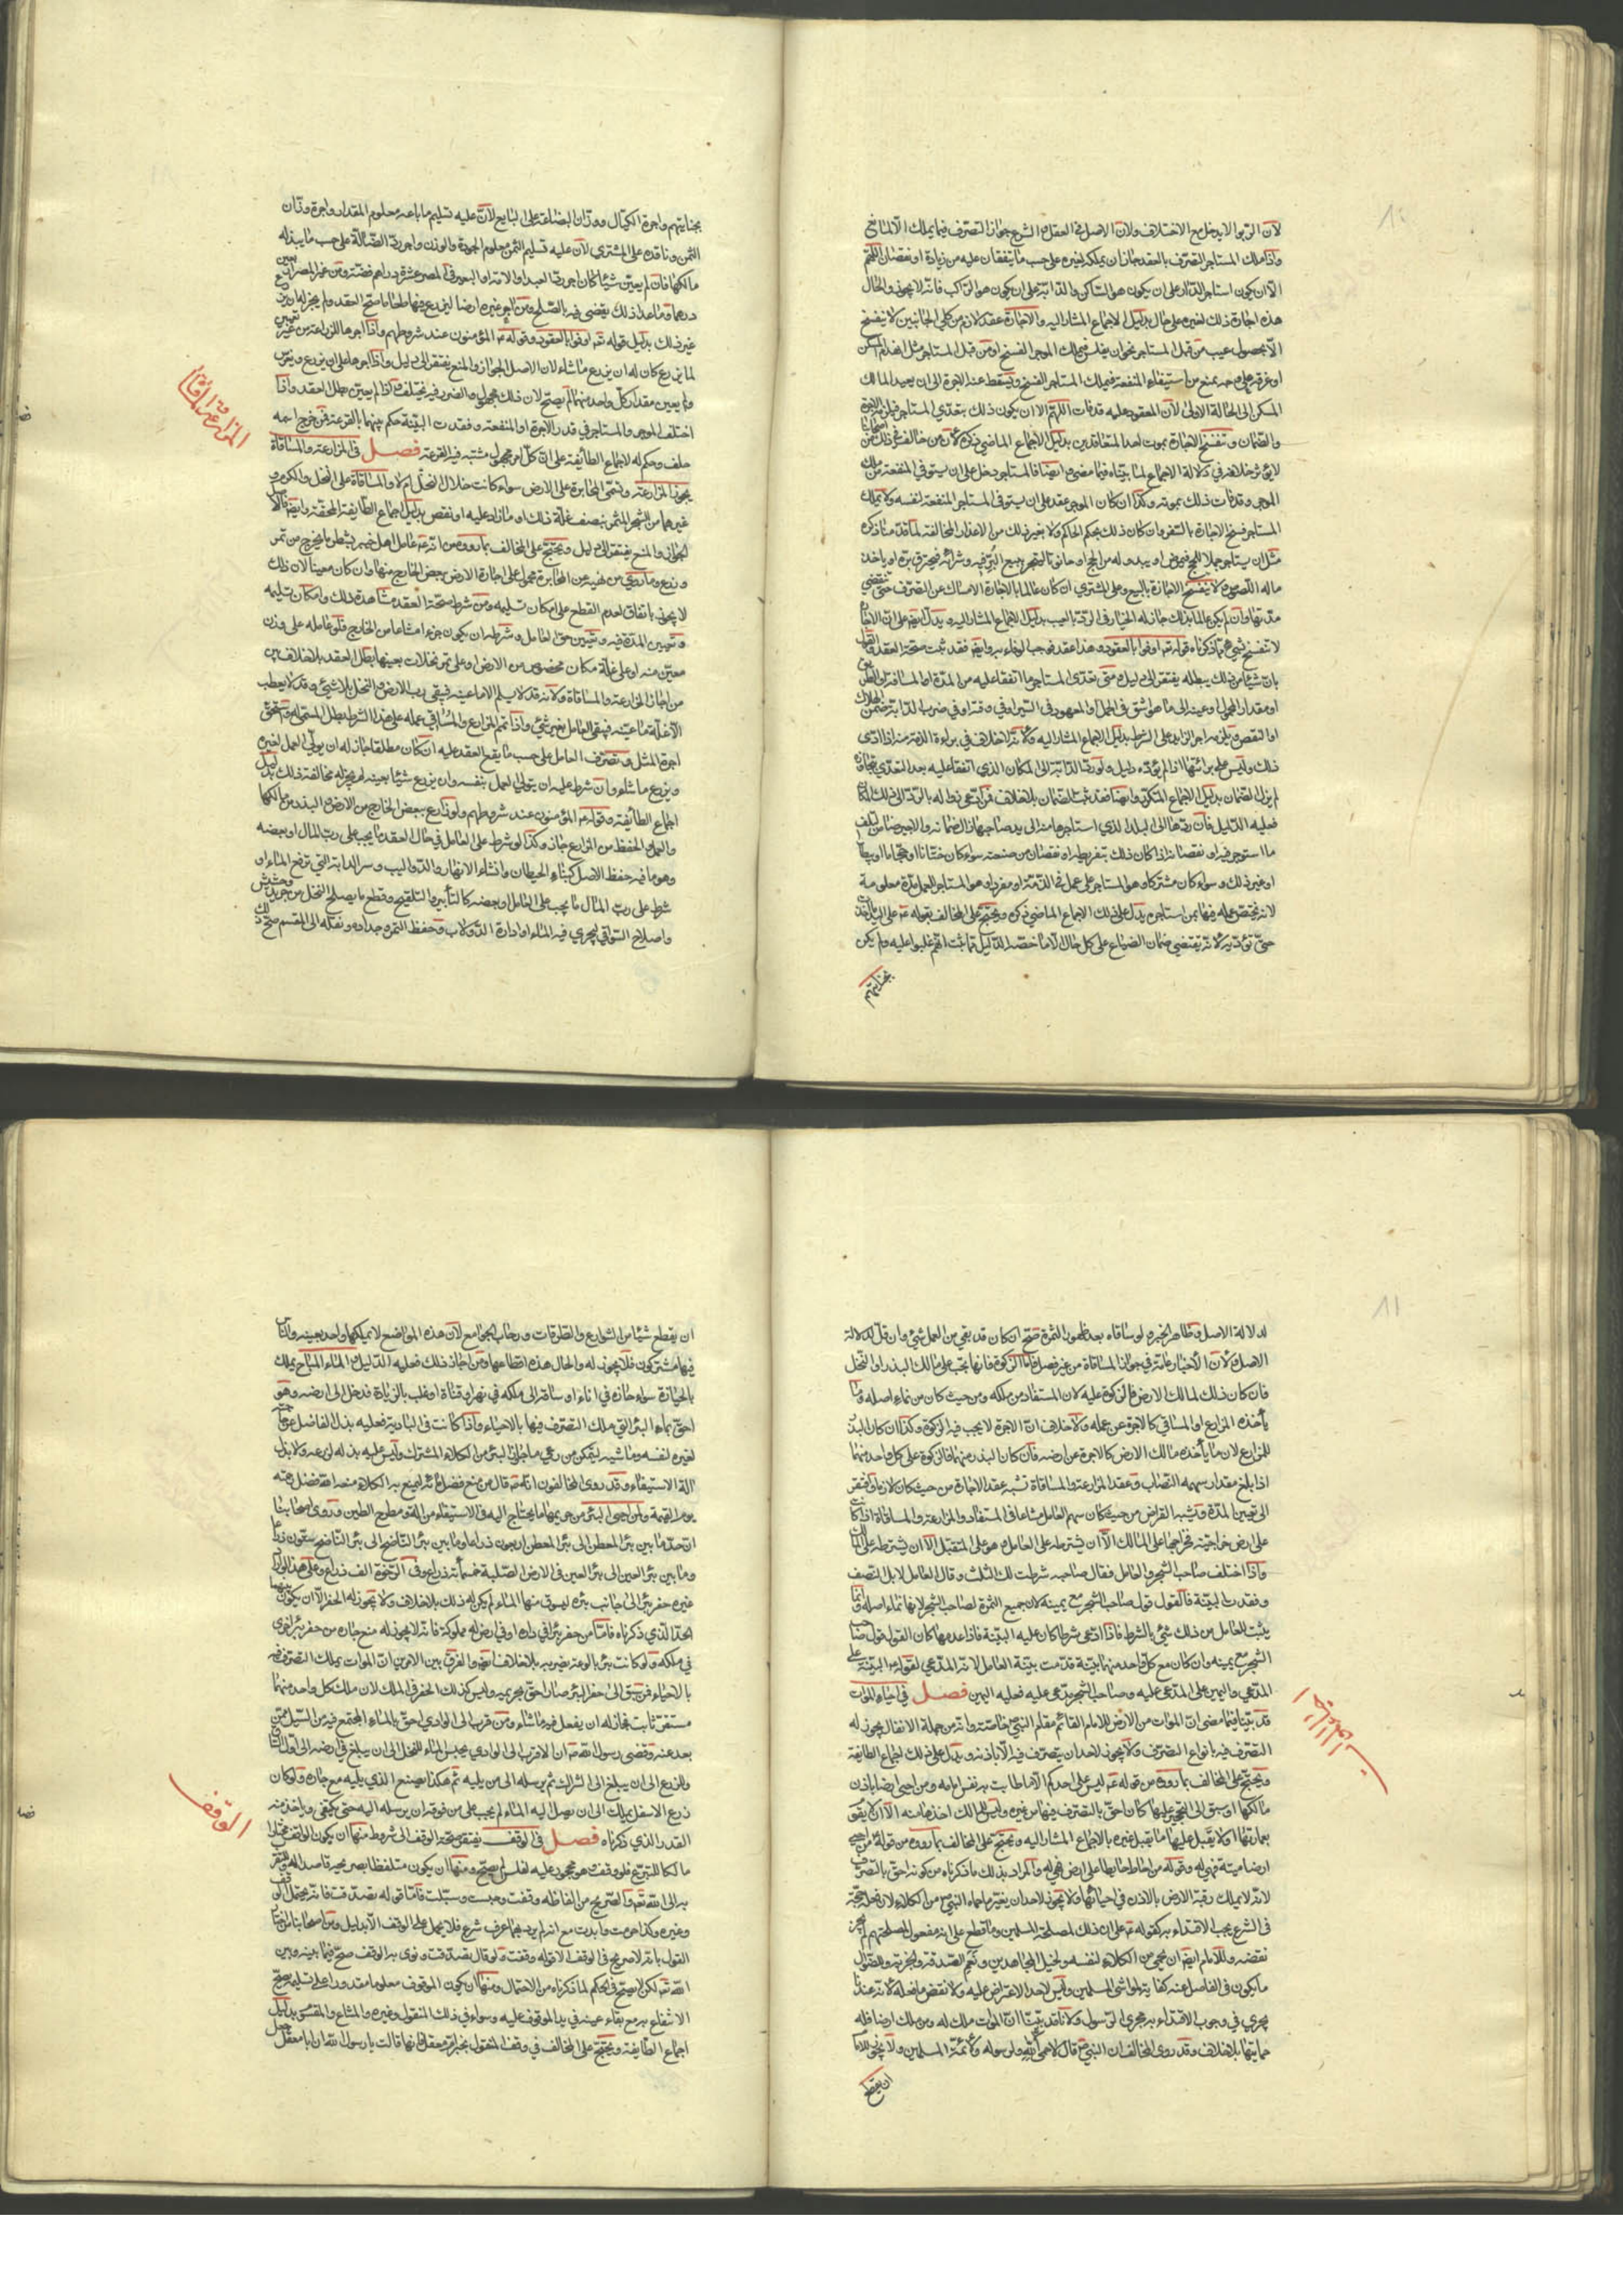 لان الربوا لا يدخل مع الاختلاف ولان الاصل في العقل والشرع جواز التصرف فيما يملك الا لمانع
واذا ملك المستاجر التصرف بالعقد جاز ان يملكه لغيره على حسب ما يتفقان عليه من زيادة او نقصان اللهم
الا ان يكون استاجر الدار على ان يكون هو الساكن والدابة على ان يكون هو الراكب فانه لا يجوز والحال
هذه اجارة ذلك لغيره على حال بدليل الاجماع المشار اليه والاجارة عقد لازم من كلى الجانبين لا ينفسخ
الا بحصول عيب من قبل المستاجر نحو ان يفلس فيملك الموجر الفسخ او من قبل المستاجر مثل انهدام المسكن
او غرقه على وجه يمنع من استيفاء المنفعة فيملك المستاجر الفسخ ويسقط عنه الاجرة الى ان يعيد المالك
المسكن الى الحالة الاولى لان المعقود عليه قد فات اللهم الا ان يكون ذلك بتعدى المستاجر فيلزمه الاجرة
والضمان وتنفسخ الاجارة بموت احد المتعاقدين بدليل الاجماع الماضي ذكره ولان من خالف في ذلك من
لا يؤثر خلافه في دلالة الاجماع لما بيناه فيما مضى وايضا فالمستاجر دخل على ان يستوفي المنفعة من ملك
الموجر وقد فات ذلك بموته وكذا ان كان الموجر عقد على ان يستوفى المستاجر المنفعة لنفسه ولا يملك
المستاجر فسخ الاجارة بالسفر وان كان ذلك بحكم الحاكم ولا بغير ذلك من الاعذار المخالفة لما قدمنا ذكره
مثل ان يستاجر جملا للحج فيمرض او يبدو له من الحج او حانوتا ليتجر فيبيع البز فيه وشرائه فيحترق بزه او ياخذ
ماله اللصوص ولا تنفسخ الاجارة بالبيع وعلى المشتري ان كان عالما بالاجارة الامساك عن التصرف حتى تنقضي
مدتها وان لم يكن عالما بذلك جاز له الخيار في الرد بالعيب بدليل الاجماع المشار اليه ويدل ايضا على ان الاجارة
لا تنفسخ بشيء مما ذكرناه قوله تعالى اوفوا بالعقود وهذا عقد فوجب الوفاء به وايضا فقد ثبت صحة العقد والقول
بان شيئا من ذلك يبطله يفتقر الى دليل ومتى تعدى المستاجر ما اتفقا عليه من المدة او المسافة او الطريق
او مقدار المحمول او عينه الى ما هو اشق في الحمل او المعهود في السير او في وقته او في ضرب الدابة ضمن الهلاك
او النقص ويلزمه اجر الزايد على الشرط بدليل الاجماع المشار اليه ولانه لا خلاف في براءة الذمة منه اذا ادى
ذلك وليس على برائتها اذا لم يؤده دليل ولو رد الدابة الى المكان الذي اتفقا عليه بعد التعدي بتجاوزه
لم يزل الضمان بدليل الاجماع المتكرر وايضا فقد ثبت الضمان بلا خلاف فمن ادعى زواله بالرد الى ذلك المكان
فعليه الدليل فان ردها الى البلد الذي استاجرها منه الى يد صاحبها زال ضمانه والاجير ضامن لتلف
ما استوجر فيه او نقصانه اذا كان ذلك بتفريطه او نقصان من صنعته سواء كان ختانا او حجاما او بيطارا
او غير ذلك وسواء كان مشتركا وهو المستاجر على عمل في الذمة او مفردا وهو المستاجر للعمل مدة معلومة
لانه يختص عمله فيها بمن استاجره يدل على ذلك الاجماع الماضي ذكره ويحتج على المخالف بقوله ع على اليد ما اخذت
حتى تؤديه لانه يقتضي ضمان الصناع على كل حال الا ما خصه الدليل مما ثبت انهم غلبوا عليه ولم يكن
بجنايتهم
بجنايتهم واجرة الكيال ووزان البضاعة على البايع لان عليه تسليم ما باعه معلوم المقدار واجرة وزان
الثمن وناقده على المشتري لان عليه تسليم الثمن معلوم الجودة والوزن واجر رد الضالة على حسب ما يبذله
مالكها فان لم يعين شيئا كان اجر رد العبد او الامة او البعير في المصر عشرة دراهم فضة ومن غير المصر اربعين
درهما وما عدا ذلك يقضى فيه بالصلح ومن اجر غيره ارضا ليزرع فيها طعاما صح العقد ولم يجز له ان يزرع
غير ذلك بدليل قوله تعالى اوفوا بالعقود وقوله ع المؤمنون عند شروطهم واذا اجرها للزراعة من غير تعيين
لما يزرع كان له ان يزرع ما شاء لان الاصل الجواز والمنع يفتقر الى دليل واذا اجرها على ان يزرع ويغرس
ولم يعين مقدار كل واحد منهما لم يصح لان ذلك مجهول والضرر فيه يختلف فاذا لم يعين بطل العقد واذا
اختلف الموجر والمستاجر في قدر الاجرة او المنفعة وفقدت البينة حكم بينهما بالقرعة فمن خرج اسمه
حلف وحكم له لاجماع الطائفة على ان كل امر مجهول مشتبه فيه القرعة فصل في المزارعة والمساقاة
المزارعة والمساقاة
يجوز المزارعة وتسمى المخابرة على الارض سواء كانت خلال النخل ام لا والمساقاة على النخل والكرم و
غيرهما من الشجر المثمر بنصف غلة ذلك او ما زاد عليه او نقص بدليل اجماع الطايفة المحقة وايضا فالاصل
الجواز والمنع يفتقر الى دليل ويحتج على المخالف بما رووه من انه ع عامل اهل خيبر بشطر ما يخرج من تمر
وزرع وما روي من نهيه عن المخابرة محمول على اجارة الارض ببعض الخارج منها وان كان معينا لان ذلك
لا يجوز باتفاق لعدم القطع على امكان تسليمه ومن شرط صحة العقد مشاهدة ذلك وامكان تسليمه
وتعيين المدة فيه وتعيين حق العامل وشرطه ان يكون جزءا مشاعا من الخارج فلو عامله على وزن
معين منه او على غلة مكان مخصوص من الارض او على تمر نخلات بعينها بطل العقد بلا خلاف بين
من اجاز المزارعة والمساقاة ولانه قد لا يسلم الا ما عينه فيبقى رب الارض والنخل بلا شيء وقد لا يعطب
الا غلة ما عينه فيبقى العامل بغير شيء واذا تمم المزارع والمساقي عمله على هذا الشرط بطل المسمى له واستحق
اجرة المثل وتصرف العامل على حسب ما يقع العقد عليه ان كان مطلقا جاز له ان يولي العمل لغيره
ويزرع ما شاء وان شرط عليه ان يتولى العمل بنفسه وان يزرع شيئا بعينه لم يجز له مخالفة ذلك بدليل
اجماع الطائفة وقوله ع المؤمنون عند شروطهم ولو زارع ببعض الخارج من الارض والبذر من مالكها
والعمل والحفظ من المزارع جاز وكذا لو شرط على العامل في حال العقد ما يجب على رب المال او بعضه
وهو ما فيه حفظ الاصل كبناء الحيطان وانشاء الانهار والدواليب وسر الدابة التي ترفع الماء او
شرط على رب المال ما يجب على العامل او بعضه كالتأبير والتلقيح وقطع ما يصلح النخل من جريد وحشيش
واصلاح السواقي ليجري فيه الماء او ادارة الدولاب وحفظ الثمرة وجذاذه ونقله الى المقسم صح ذلك
لدلالة الاصل وظاهر الخبر ولو ساقاه بعد ظهور الثمرة صح ان كان قد بقي من العمل شيء وان قل لدلالة
الاصل ولان الاخبار عامة في جواز المساقاة من غير فصل فاما الزكوة فانها تجب على مالك البذر او النخل
فان كان ذلك لمالك الارض فالزكوة عليه لان المستفاد من ملكه ومن حيث كان من نماء اصله وما
يأخذه المزارع او المساقي كالاجرة عن عمله ولا خلاف ان الاجرة لا يجب فيه الزكوة وكذا ان كان البذر
للمزارع لان ما يأخذه مالك الارض كالاجرة عن ارضه فان كان البذر منهما فالزكوة على كل واحد منهما
اذا بلغ مقدار سهمه النصاب وعقد المزارعة والمساقاة تشبه عقد الاجارة من حيث كان لازما ويفتقر
الى تعيين المدة وتشبه القراض من حيث كان سهم العامل مشاعا في المستفاد والمزارعة والمساقاة اذا كانت
على ارض خراجية فخراجها على المالك الا ان يشترطه على العامل وهو على المتقبل الا ان يشترطه على المالك
واذا اختلف صاحب الشجر والعامل فقال صاحبه شرطت لك الثلث وقال العامل لا بل النصف
وفقدت البينة فالقول قول صاحب الشجر مع يمينه لان جميع الثمرة لصاحب الشجر لانها نماء اصله وانما
يثبت للعامل من ذلك شيء بالشرط فاذا ادعى شرطا كان عليه البينة فاذا عدمها كان القول قول صاحب
الشجر مع يمينه وان كان مع كل واحد منهما بينة قدمت بينة العامل لانه المدعي لقوله ع البينة على
المدعي واليمين على المدعى عليه وصاحب الشجر مدعى عليه فعليه اليمين فصل في احياء الموات
احياء الموات
قد بينا فيما مضى ان الموات من الارض للامام القائم مقام النبي ص خاصة وانه من جملة الانفال يجوز له
التصرف فيه بانواع التصرف ولا يجوز لاحد ان يتصرف فيه الا باذنه ويدل على ذلك اجماع الطايفة
ويحتج على المخالف بما رووه من قوله ع ليس على احدكم الا ما طابت به نفس امامه ومن احيى ارضا باذن
مالكها او سبق الى التحجير عليها كان احق بالتصرف فيها من غيره وليس للمالك اخذها منه الا ان لا يقوم
بعمارتها او لا يقبل عليها ما يقبل غيره بالاجماع المشار اليه ويحتج على المخالف بما رووه من قوله ع من احيى
ارضا ميتة فهي له وقوله من احاط حايطا على ارض فهي له والمراد بذلك ما ذكرناه من كونه احق بالتصرف
لانه لا يملك رقبة الارض بالاذن في احيائها ولا يجوز لاحد ان يغير ما حماه النبي ص من الكلاء لان فعله حجة
في الشرع يجب الاقتداء به كقوله ع على ان ذلك لمصلحة المسلمين وما قطع على انه مفعول لمصلحتهم لم يجز
نقضه وللامام ايضا ان يحمي من الكلاء لنفسه ولخيل المجاهدين ونعم الصدقة والجزية والضوال
ما يكون في الفاضل عنه كفاية لمواشي المسلمين وليس لاحد الاعتراض عليه ولا نقض ما فعله لانه عندنا
يجري في وجوب الاقتداء به مجرى الرسول ولانا قد بينا ان الموات ملك له ومن ملك ارضا فله
حمايتها بلا خلاف وقد روى المخالف ان النبي ص قال لا حمى الا لله ولرسوله ولائمة المسلمين ولا يجوز للامام
ان يقطع
ان يقطع شيئا من الشوارع والطرقات ورحاب الجوامع لان هذه المواضع لا يملكها واحد بعينه والناس
فيها مشتركون فلا يجوز له والحال هذه اقطاعها ومن اجاز ذلك فعليه الدليل والماء المباح يملك
بالحيازة سواء حازه في اناء او ساقه الى ملكه في نهر او قناة او غلب بالزيادة فدخل الى ارضه وهو
احق بماء البئر التي ملك التصرف فيها بالاحياء واذا كانت في البادية فعليه بذل الفاضل عن حاجته
لغيره لنفسه وماشيته ليتمكن من رعي ما جاور البئر من الكلاء المشترك وليس عليه بذله لزرعه ولا بذل
الة الاستيفاء وقد روى المخالفون انه ع قال من منع فضل مائه ليمنع به الكلاء منعه الله فضل رحمته
يوم القيمة ولمن احيى البئر من حريمها ما يحتاج اليه في الاستيفاء من الة ومطرح الطين وروى اصحابنا
ان حد ما بين بئر المعطن الى بئر المعطن اربعون ذراعا وما بين بئر الناضح الى بئر الناضح ستون ذراعا
وما بين بئر العين الى بئر العين في الارض الصلبة خمسمائة ذراع وفي الرخوة الف ذراع وعلى هذا لو اراد
غيره حفر بئر الى جانب بئره ليسوق منها الماء لم يكن له ذلك بلا خلاف ولا يجوز له الحفر الا ان يكون بينهما
الحد الذي ذكرناه فاما من حفر بئرا في داره او في ارض له مملوكة فانه لا يجوز له منع جاره من حفر بئر اخرى
في ملكه ولو كانت بئر بالوعة يضر به بلا خلاف ايضا والفرق بين الامرين ان الموات يملك التصرف فيه
بالاحياء فمن سبق الى حفر البئر صار احق بحريمه وليس كذلك الحفر في الملك لان ملك كل واحد منهما
مستقر ثابت فجاز له ان يفعل فيه ما شاء ومن قرب الى الوادي احق بالماء المجتمع فيه من السيل ممن
بعد عنه وقضى رسول الله ص ان الاقرب الى الوادي يحبس الماء للنخل الى ان يبلغ في ارضه الى اول الساق
وللزرع الى ان يبلغ الى الشراك ثم يرسله الى من يليه ثم هكذا يصنع الذي يليه مع جاره ولو كان
زرع الاسفل يهلك الى ان يصل اليه الماء لم يجب على من فوقه ان يرسله اليه حتى يكتفي وياخذ منه
القدر الذي ذكرناه فصل في الوقف يفتقر صحة الوقف الى شروط منها ان يكون الواقف مختارا
الوقف
مالكا للتبرع فلو وقف وهو محجور عليه لفلس لم يصح ومنها ان يكون متلفظا بصريحه قاصدا له وللتقرب
به الى الله تعالى والصريح من الفاظه وقفت وحبست وسبلت فاما قوله تصدقت فانه يحتمل الوقف
وغيره وكذا حرمت وابدت مع انه لم يرد بهما عرف شرع فلا يحمل على الوقف الا بدليل ومن اصحابنا من اختار
القول بانه لا صريح في الوقف الا قوله وقفت ولو قال تصدقت ونوى به الوقف صح فيما بينه وبين
الله تعالى لكن لا يصح في الحكم لما ذكرناه من الاحتمال ومنها ان يكون الموقوف معلوما مقدورا على تسليمه يصح
الانتفاع به مع بقاء عينه في يد الموقوف عليه وسواء في ذلك المنقول وغيره والمشاع والمقسوم بدليل
اجماع الطايفة ويحتج على المخالف في وقف المنقول بخبر ام معقل فانها قالت يا رسول الله ان ابا معقل جعل